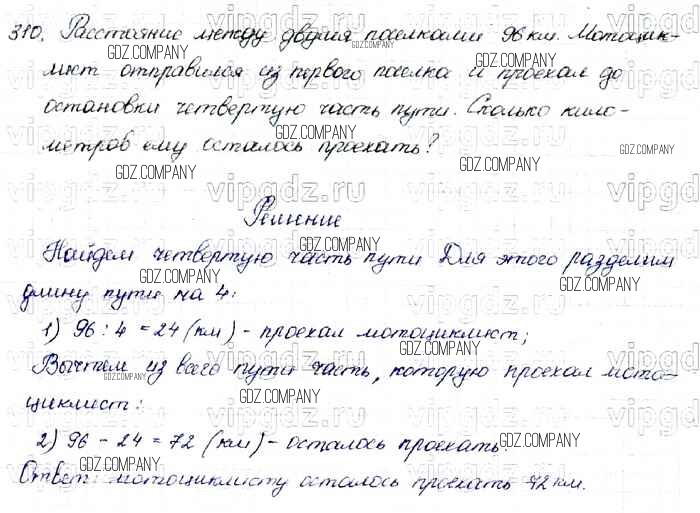 310. Расстояние между двумя поселками 96 км. Мотоцик-
лист отправился из первого поселка и проехал до
остановки четвертую часть пути. Сколько кило-
метров ему осталось проехать?
Решение
Найдем четвертую часть пути. Для этого разделим
длину пути на 4:
1) 96 : 4 = 24 (км) - проехал мотоциклист;
Вычтем из всего пути часть, которую проехал мото-
циклист:
2) 96 - 24 = 72 (км) - осталось проехать.
Ответ: мотоциклисту осталось проехать 72 км.